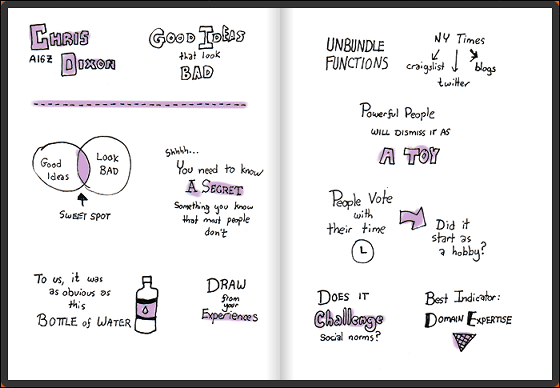 CHRIS
A16Z DIXON
GOOD IDEAS
that look
BAD
Good
Ideas
Look
BAD
SWEET SPOT
Shhhh...
You need to know
A SECRET
Something you know
that most people
don't
To us, it was
as obvious as
this
BOTTLE of WATER
DRAW
from your
Experiences
UNBUNDLE
FUNCTIONS
NY Times
craigslist
twitter
blogs
Powerful People
WILL DISMISS IT AS
A TOY
People Vote
with
their time
Did it
start as
a hobby?
DOES IT
Challenge
Social norms?
Best Indicator:
DOMAIN EXPERTISE